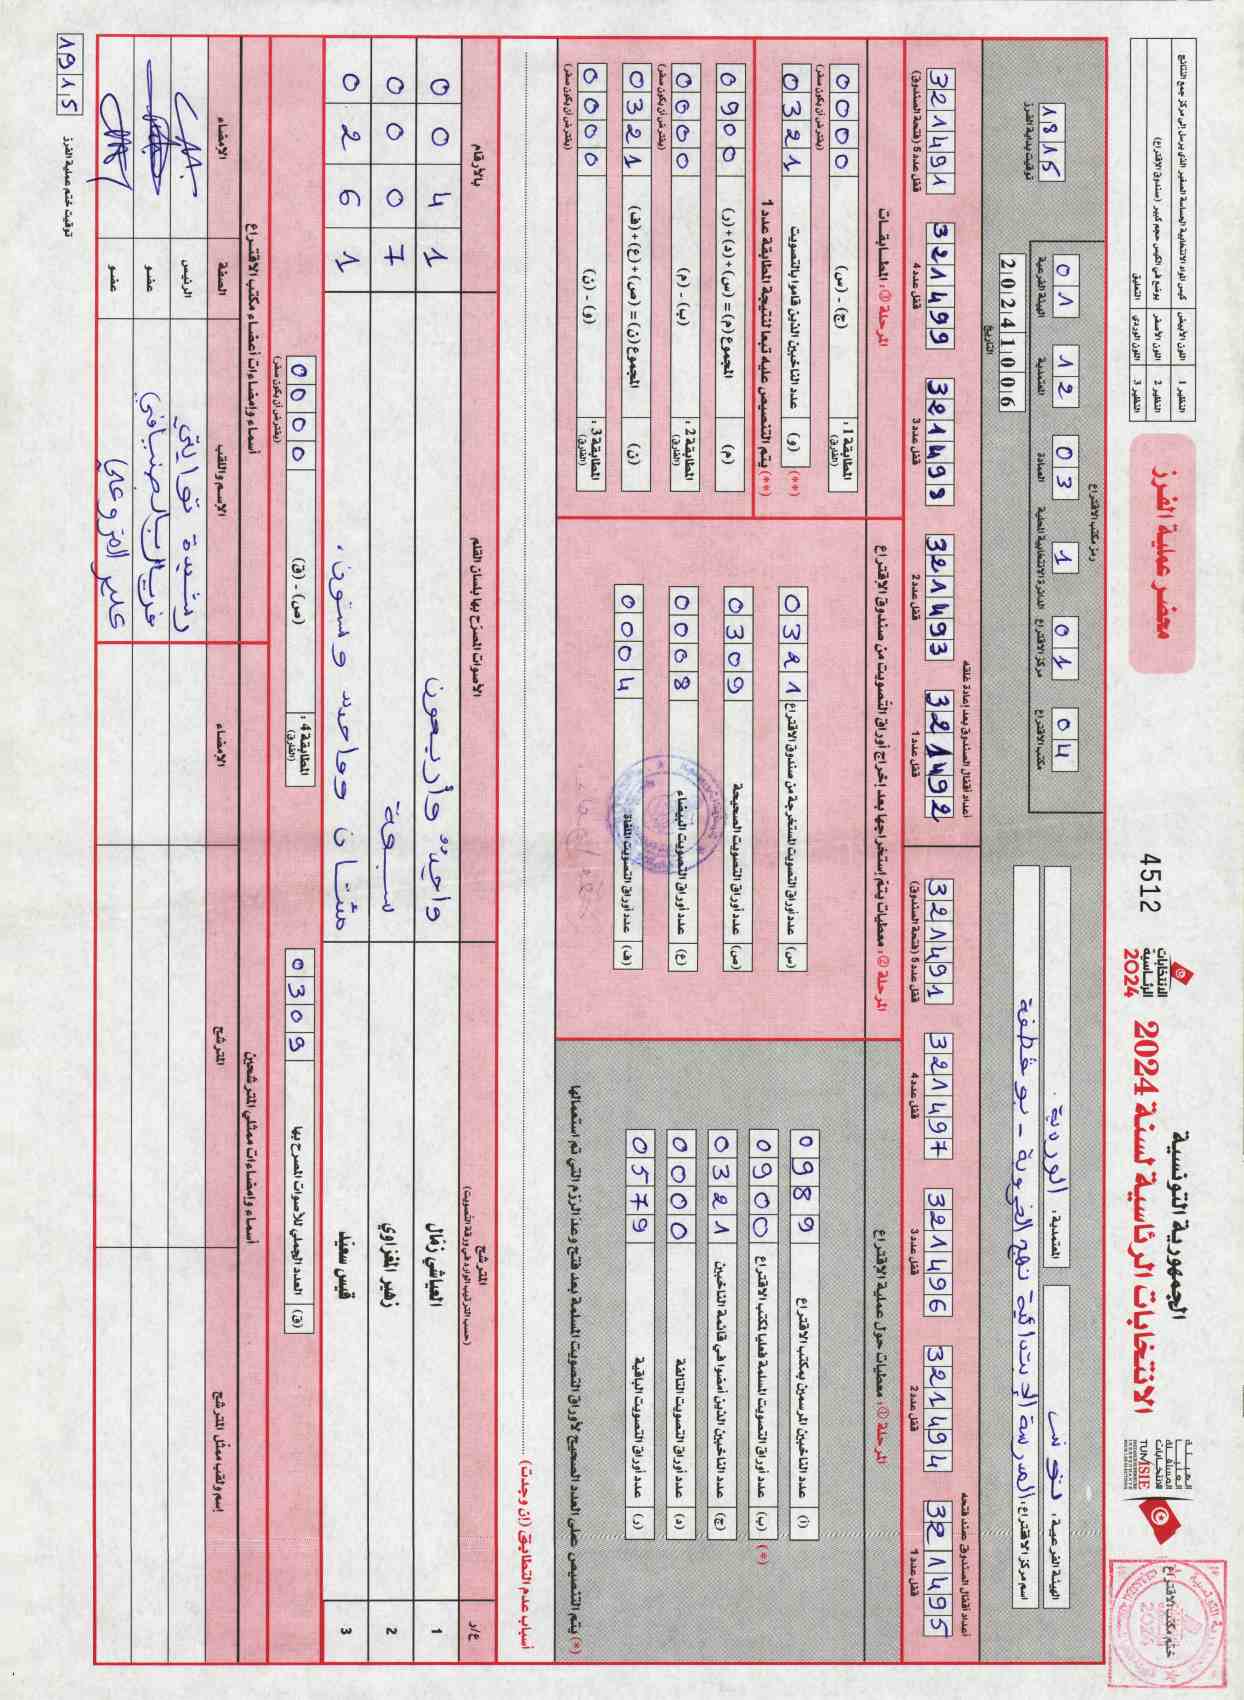 الجمهورية التونسية
الانتخابات الرئاسية لسنة 2024
الانتخابات
الرئاسية
2024
4512
محضر عملية الفرز
ختم مكتب الاقتراع
النظير 1
اللون الأبيض
كيس المواد الانتخابية الحساسة الصغير الذي يرسل إلى مركز جمع النتائج
النظير 2
اللون الأصفر
يوضع في الكيس حجم كبير (صندوق الاقتراع)
النظير 3
اللون الوردي
التعليق
الهيئة الفرعية: تونس
المعتمدية: الوردية
اسم مركز الاقتراع: المدرسة الابتدائية نهج الخروبة - بوقطفة
رمز مكتب الاقتراع
04 01 1 03 12 01
مكتب الاقتراع
مركز الاقتراع
الدائرة الانتخابية المحلية
العمادة
المعتمدية
الهيئة الفرعية
20241006
التاريخ
1815
توقيت بداية الفرز
أعداد أقفال الصندوق عند فتحه
321495
قفل عدد 1
321494
قفل عدد 2
321496
قفل عدد 3
321497
قفل عدد 4
321491
قفل عدد 5 (فتحة الصندوق)
أعداد أقفال الصندوق بعد إعادة غلقه
321492
قفل عدد 1
321493
قفل عدد 2
321498
قفل عدد 3
321499
قفل عدد 4
321491
قفل عدد 5 (فتحة الصندوق)
المرحلة ①: معطيات حول عملية الاقتراع
(أ) عدد الناخبين المرسمين بمكتب الاقتراع 0989
(ب) عدد أوراق التصويت المسلمة فعليا لمكتب الاقتراع 0900 (*)
(ج) عدد الناخبين الذين أمضوا في قائمة الناخبين 0321
(د) عدد أوراق التصويت التالفة 0000
(ر) عدد أوراق التصويت الباقية 0579
(*) يتم التنصيص على العدد الصحيح لأوراق التصويت المسلمة بعد فتح وعد الرزم التي تم استعمالها
المرحلة ②: معطيات يتم إستخراجها بعد إخراج أوراق التصويت من صندوق الاقتراع
(س) عدد أوراق التصويت المستخرجة من صندوق الاقتراع 0321
(ص) عدد أوراق التصويت الصحيحة 0309
(ع) عدد أوراق التصويت البيضاء 0008
(ف) عدد أوراق التصويت الملغاة 0004
المرحلة ③: المطابقات
المطابقة 1: (الفارق) (ج) - (س) 0000 (يفترض أن يكون صفر)
(**) (و) عدد الناخبين الذين قاموا بالتصويت 0321
(**) يتم التنصيص عليه تبعا لنتيجة المطابقة عدد 1
(م) المجموع (م) = (س) + (د) + (ر) 0900
المطابقة 2: (الفارق) (ب) - (م) 0000 (يفترض أن يكون صفر)
(ن) المجموع (ن) = (ص) + (ع) + (ف) 0321
المطابقة 3: (الفارق) (و) - (ن) 0000 (يفترض أن يكون صفر)
أسباب عدم التطابق (إن وجدت)
ع/ر
المترشح
(حسب الترتيب الوارد في ورقة التصويت)
الأصوات المصرّح بها بلسان القلم
بالأرقام
1 العياشي زمّال واحد وأربعون 0041
2 زهير المغزاوي سبعة 0007
3 قيس سعيّد مئتان وواحد وستون 0261
(ق) العدد الجملي للأصوات المصرح بها 0309
المطابقة 4: (الفارق) (ص) - (ق) 0000 (يفترض أن يكون صفر)
أسماء وإمضاءات ممثلي المترشحين
إسم ولقب ممثّل المترشح
المترشح
الإمضاء
أسماء وإمضاءات أعضاء مكتب الاقتراع
الإسم واللقب
الصفة
الإمضاء
الرئيس
عضو
عضو
توقيت ختم عملية الفرز
1915